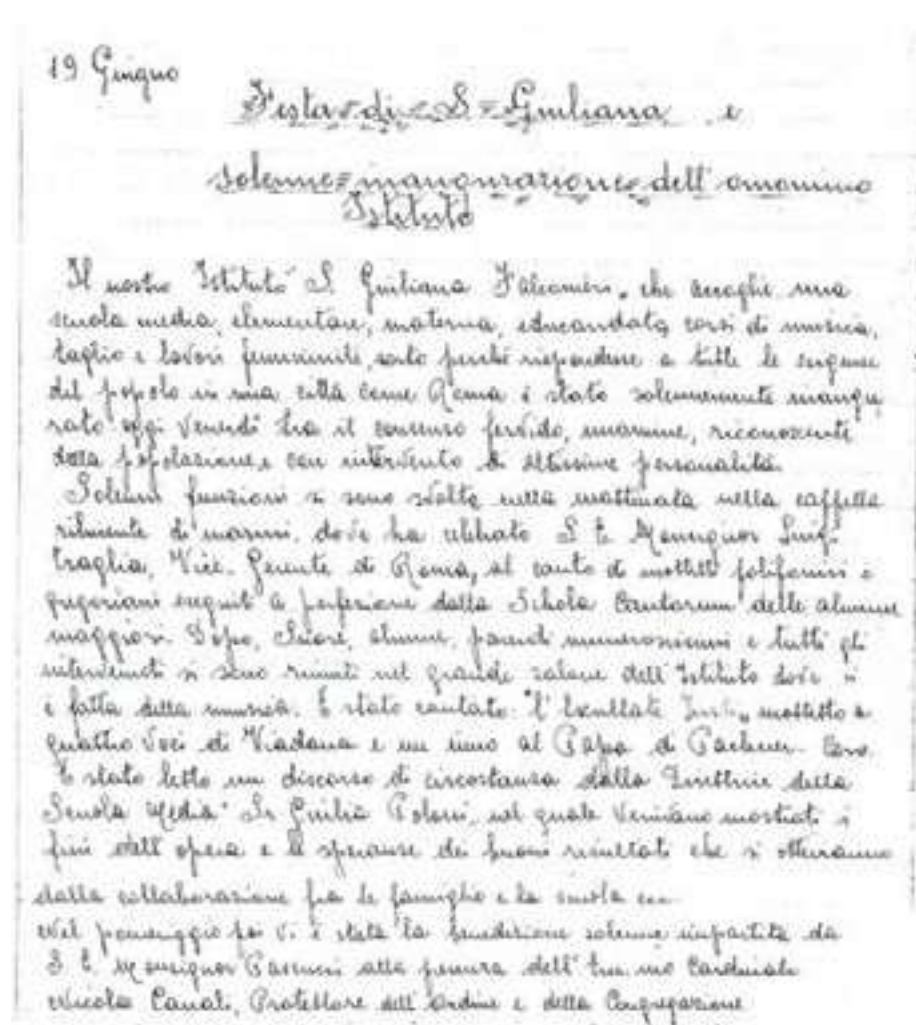 19 Giugno
Festa di S. Giuliana e
solenne inaugurazione dell'omonimo
Istituto
Il nostro Istituto S. Giuliana Falconieri, che accoglie una
scuola media, elementare, materna, educandato, corsi di musica,
taglio e lavori femminili, sorto perché rispondesse a tutte le esigenze
del popolo in una città come Roma è stato solennemente inaugu
rato oggi Venerdì tra il consenso fervido, unanime, riconoscente
della popolazione e con intervento di altissime personalità.
Solenni funzioni si sono svolte nella mattinata nella cappella
rilucente di marmi, dove ha celebrato S. E. Monsignor Luigi
Traglia, Vice-Gerente di Roma, al canto di mottetti polifonici e
gregoriani eseguiti a perfezione dalla Schola Cantorum delle alunne
maggiori. Dopo, Suore, alunne, parenti numerosissimi e tutti gli
intervenuti si sono riuniti nel grande salone dell'Istituto dove si
è fatta della musica. È stato cantato: "l'Exultate Justi" mottetto a
quattro voci di Viadana e un inno al Papa di
È stato letto un discorso di circostanza dalla Direttrice della
Scuola Media Sr Giulia nel quale venivano mostrati i
fini dell'opera e le speranze dei buoni risultati che si otterranno
dalla collaborazione fra le famiglie e la scuola ecc.
Nel pomeriggio poi vi è stata la benedizione solenne impartita da
S. E. Monsignor Pascucci alla presenza dell'Em.mo Cardinale
Nicola Canali, Protettore dell'Ordine e della Congregazione